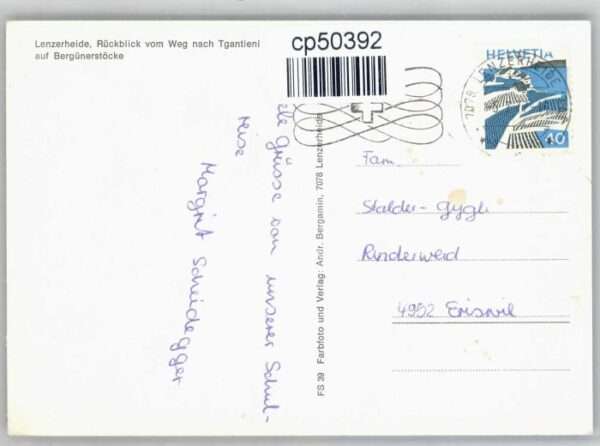 Lenzerheide, Rückblick vom Weg nach Tgantieni
auf Bergünerstöcke
cp50392
HELVETIA
7078 LENZERHEIDE
40
Grüsse von unserer Schul-
reise
Margrit Scheidegger
FS 39 Farbfoto und Verlag: Andr. Bergamin, 7078 Lenzerheide
Fam.
Stalder-Gygli
Rinderweid
4952 Eriswil